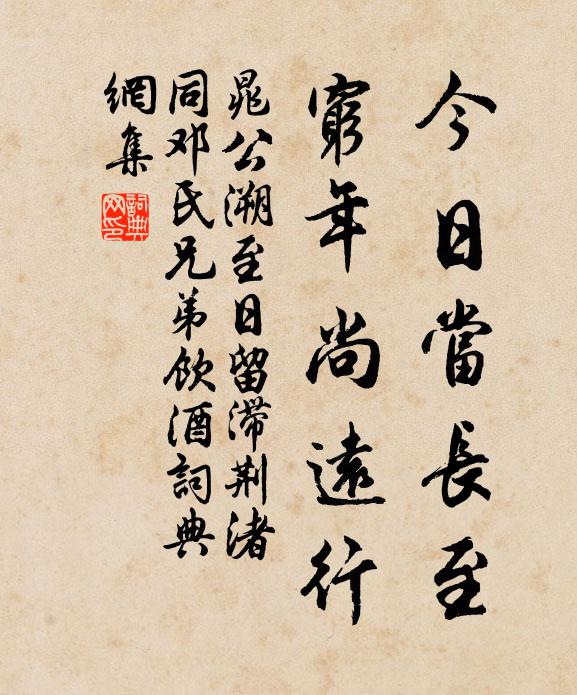 今日當長至
窮年尚遠行
晁公溯至日留滯荆渚
同邓氏兄弟飲酒詞典
網集
詞典网印